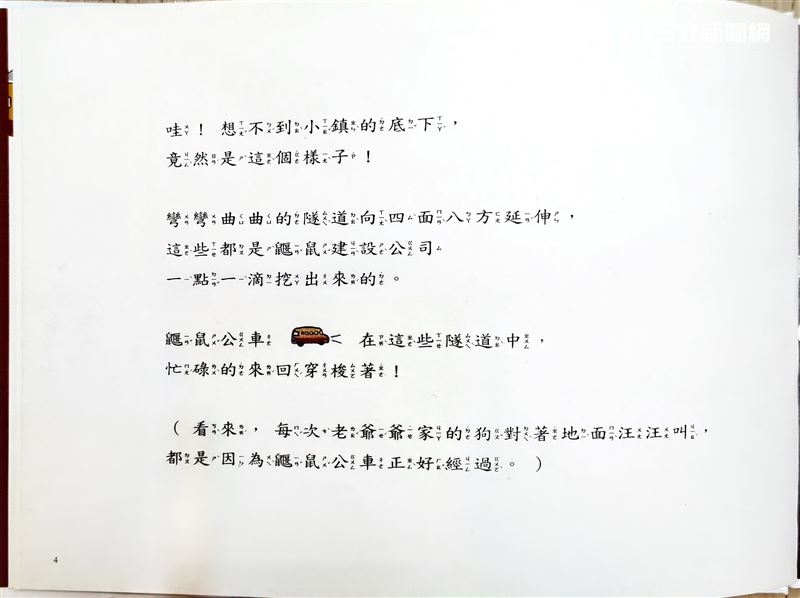 立新聞網
哇！想不到小鎮的底下，
竟然是這個樣子！
彎彎曲曲的隧道向四面八方延伸，
這些都是鼴鼠建設公司
一點一滴挖出來的。
鼴鼠公車 在這些隧道中，
忙碌的來回穿梭著！
（看來，每次老爺爺家的狗對著地面汪汪叫，
都是因為鼴鼠公車正好經過。）
4